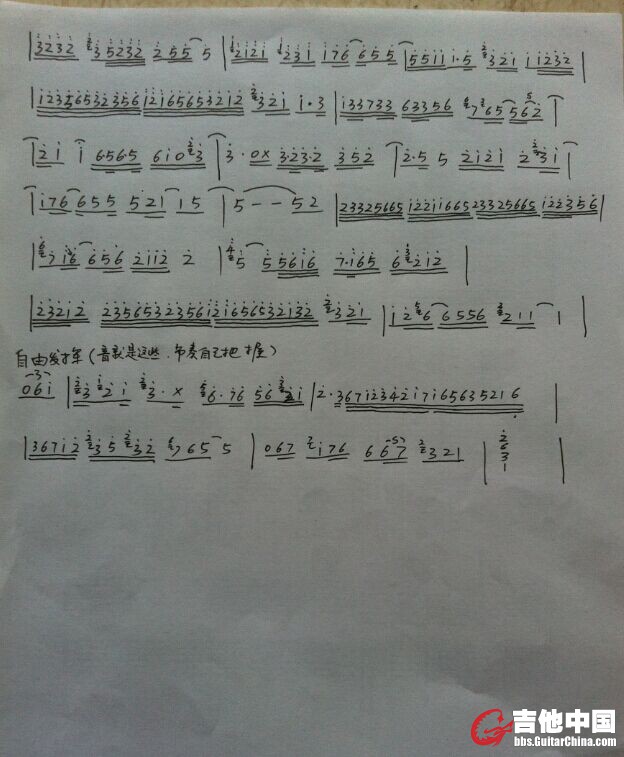 |3̇2̇3̇2̇ 3̇5̇2̇3̇2̇ 2̇5̇5̇ 5|2̇1̇2̇1̇ 2̇3̇1̇ 1̇76 655|551̇1̇ 1̇·5 3̇2̇1̇ 1̇1̇2̇3̇2̇|
|123565323561216565321 2 321 1·3|133733 63356 7655562|
|21 1 6565 6103|3·0X 323·2 352|2·5 5 2121 231|
|176655 521 15|5--52|23325665 1221166523325665 122356|
|716656 2112 2|5 55616 7·165 6212|
|23212 2356532356121656532132 321|1266556 211 1|
自由发挥(音就是这些.节奏自己把握)
061|321 3·X 6·76 5621|2·3671234217165635216|
|36712 3532 765 5|067 176 667 321|2631|
吉他中国
bbs.GuitarChina.com